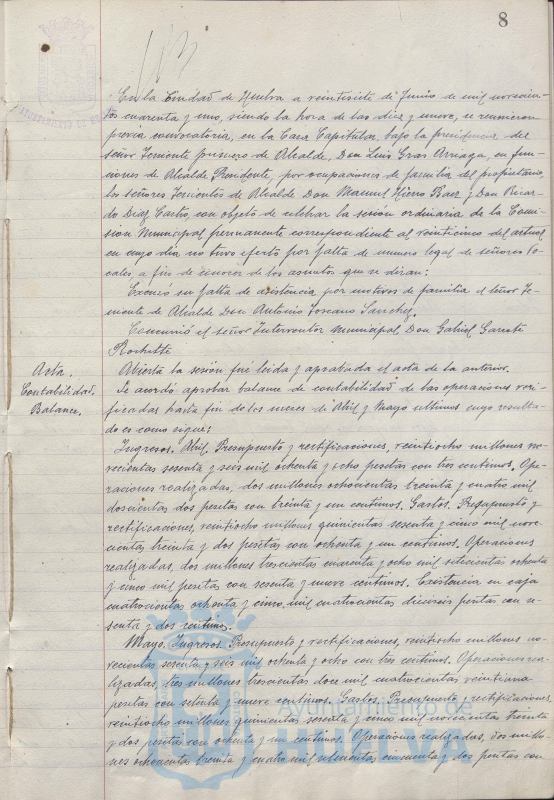 8
En la Ciudad de Huelva a veintisiete de Junio de mil novecien-
tos cuarenta y uno, siendo la hora de las diez y nueve, se reunieron
previa convocatoria, en la Casa Capitular, bajo la presidencia del
señor Teniente primero de Alcalde, Don Luis Gras Arreaga, en fun-
ciones de Alcalde Presidente, por ocupaciones de familia del propietario,
los señores Tenientes de Alcalde Don Manuel Hierro Baez y Don Ricar-
do Diaz Castro, con objeto de celebrar la sesión ordinaria de la Comi-
sion Municipal permanente correspondiente al veinticinco del actual
en cuyo dia no tuvo efecto por falta de numero legal de señores Vo-
cales, a fin de conocer de los asuntos que se diran:
Excusó su falta de asistencia, por motivos de familia el señor Te-
niente de Alcalde Don Antonio Toscano Sanchez.
Concurrió el señor Interventor Municipal, Don Gabriel
Rochette
Acta.
Abierta la sesión fué leida y aprobada el acta de la anterior.
Contabilidad.
Se acordó aprobar balance de contabilidad de las operaciones veri-
Balance.
ficadas hasta fin de los meses de Abril y Mayo ultimos cuyo resulta-
do es como sigue:
Ingresos. Abril. Presupuesto y rectificaciones, veintiocho millones no-
vecientas sesenta y seis mil ochenta y ocho pesetas con tres centimos. Ope-
raciones realizadas, dos millones ochocientas treinta y cuatro mil
doscientas dos pesetas con treinta y un centimos. Gastos. Presupuesto y
rectificaciones, veintiocho millones quinientas sesenta y cinco mil nove-
cientas treinta y dos pesetas con ochenta y un centimos. Operaciones
realizadas, dos millones trescientas cuarenta y ocho mil setecientas ochenta
y cinco mil pesetas con sesenta y nueve centimos. Existencia en caja
cuatrocientas ochenta y cinco mil cuatrocientas dieciseis pesetas con se-
senta y dos centimos.
Mayo. Ingresos. Presupuesto y rectificaciones, veintiocho millones no-
vecientas sesenta y seis mil ochenta y ocho con tres centimos. Operaciones rea-
lizadas, tres millones trescientas doce mil cuatrocientas veintiuna
pesetas con setenta y nueve centimos. Gastos. Presupuesto y rectificaciones,
veintiocho millones quinientas sesenta y cinco mil novecientas treinta
y dos pesetas con ochenta y un centimos. Operaciones realizadas, dos millo-
nes ochocientas treinta y cuatro mil setecientas cincuenta y dos pesetas con
Ayuntamiento de
HUELVA